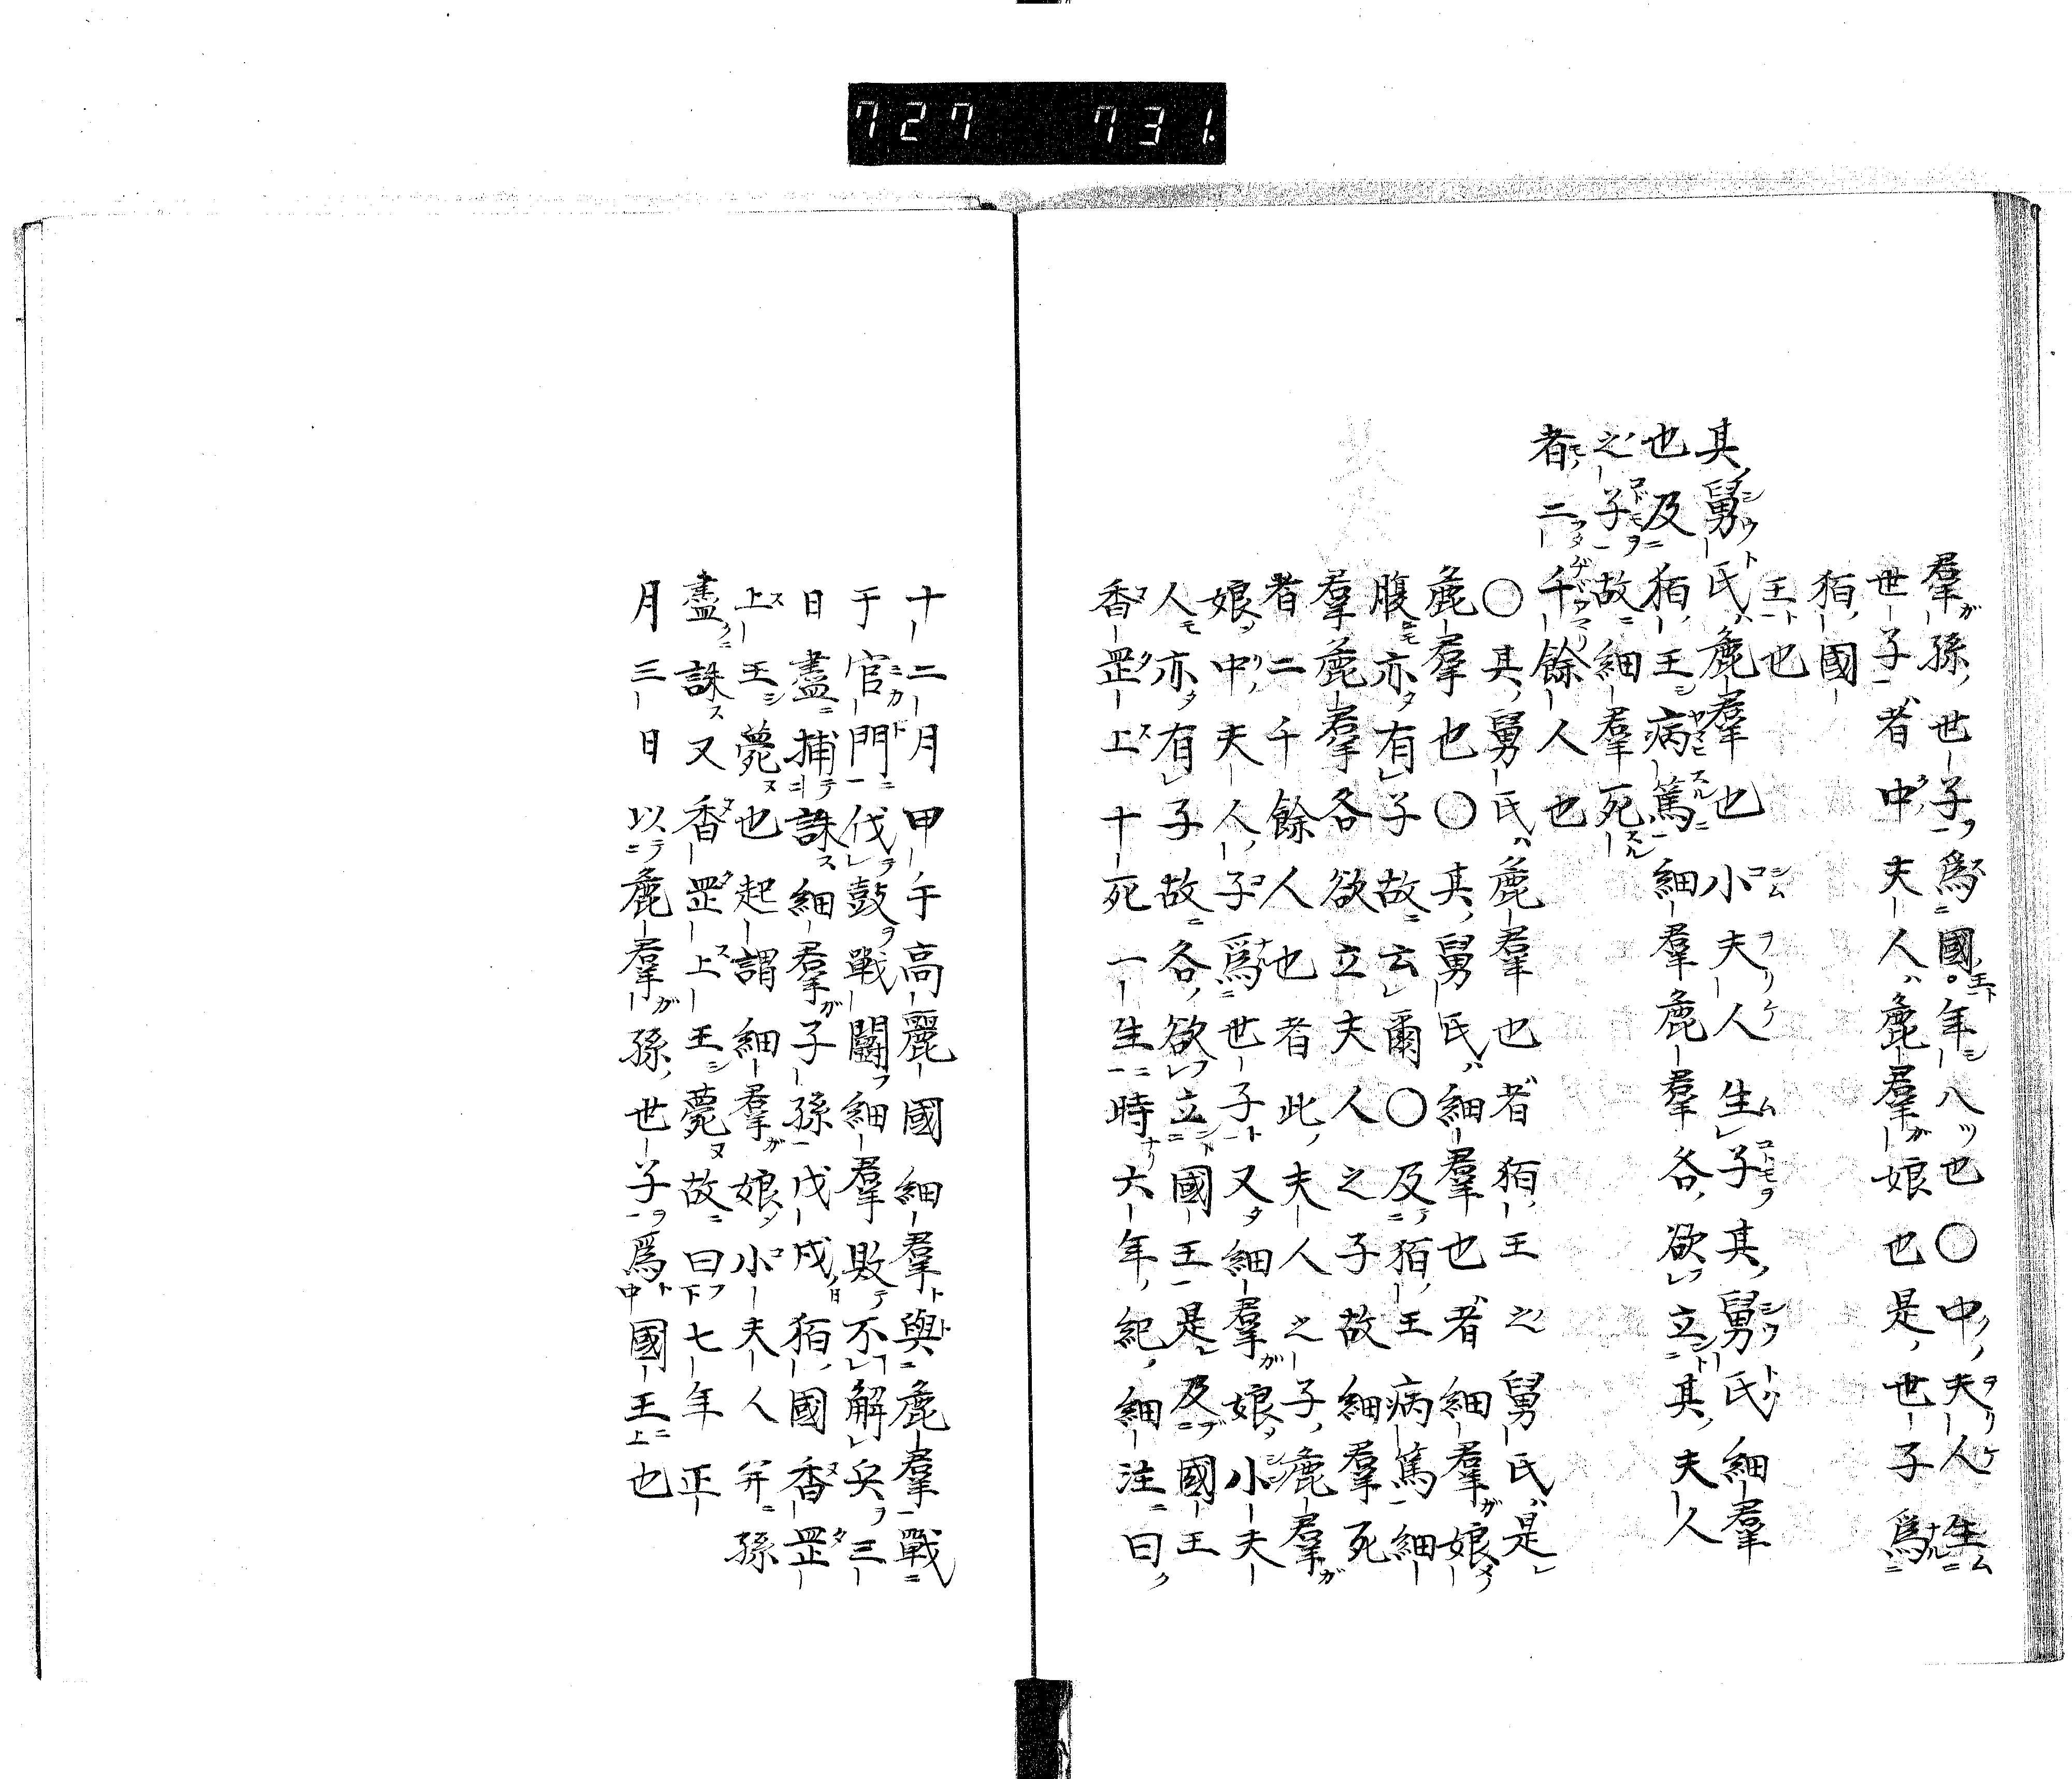 727 731.
羣孫世子爲國王年八也〇中夫人生
世子者中夫人麁羣娘也是世子爲
狛國
王也
其舅氏麁羣也小夫人生子其舅氏細羣
也及狛王病篤細羣麁羣各欲立其夫人
之子故細羣死
者二千餘人也
〇其舅氏麁羣也者狛王之舅氏是
麁羣也〇其舅氏細羣也者細羣娘
腹亦有子故云爾〇及狛王病篤細
羣麁羣各欲立夫人之子故細羣死
者二千餘人也者此夫人之子麁羣
娘中夫人子爲世子又細羣娘小夫
人亦有子故各欲立國王是及國王
香罡上十死一生時六年紀細注曰
十二月甲午高麗國細羣與麁羣戰
于官門伐鼓戰鬪細羣敗不解兵三
日盡捕誅細羣子孫戊戌狛國香罡
上王薨也起謂細羣娘小夫人并孫
盡誅又香罡上王薨故曰七年正
月三日以麁羣孫世子爲國王也